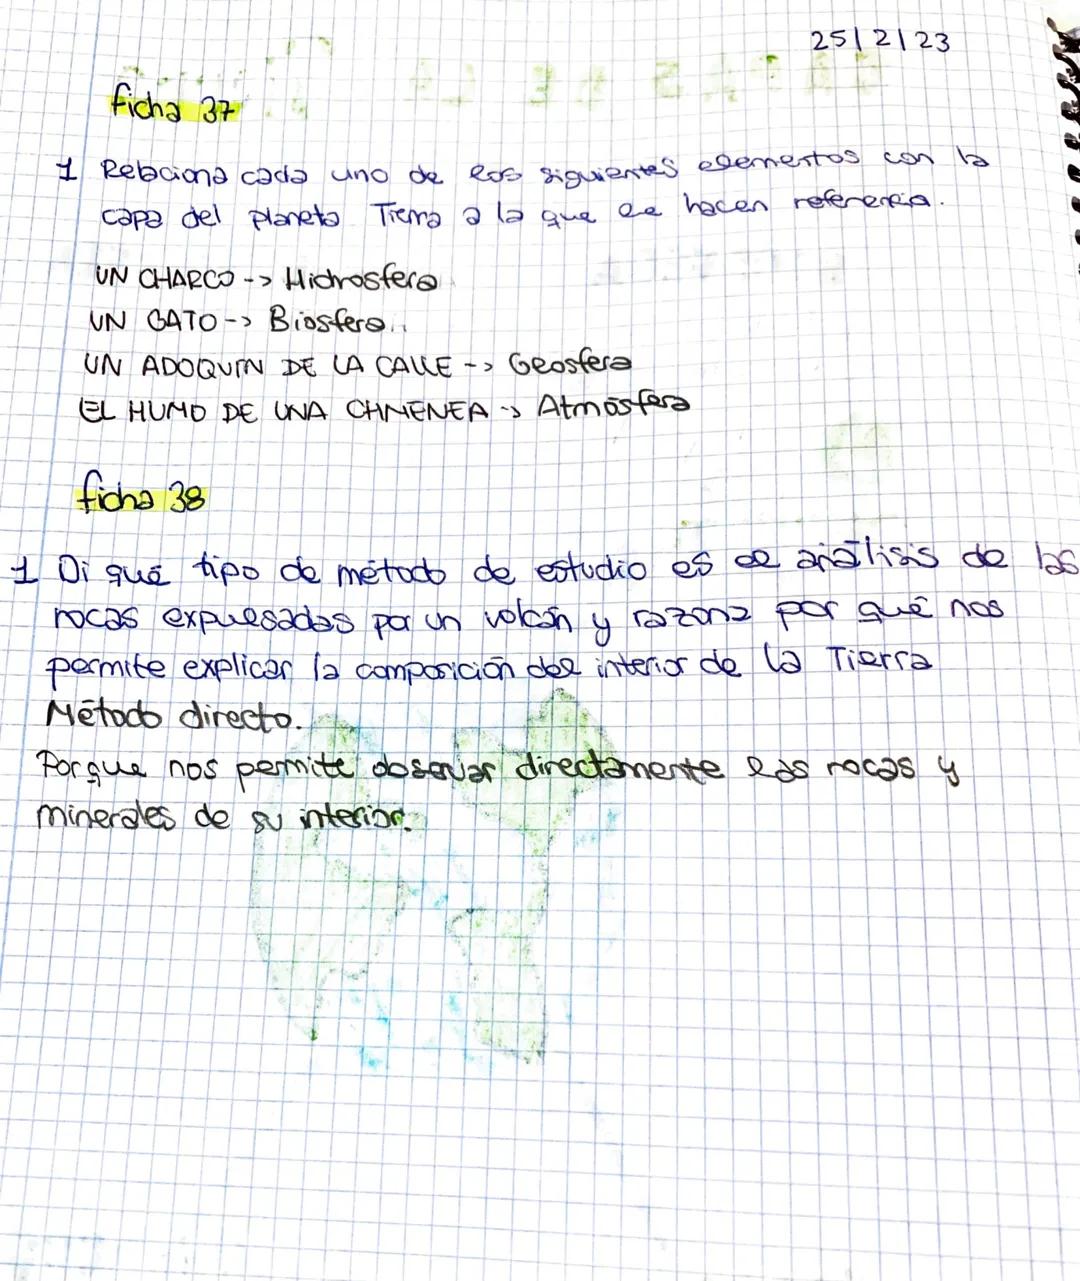 25/2/23
ficha 37
1 Relaciona cada uno de los siguientes elementos con la
capa del planeta Tierra a la que le hacen referencia.
UN CHARCO --> Hidrosfera
UN GATO --> Biosfera..
UN ADOQUIN DE LA CALLE --> Geosfera
EL HUMO DE UNA CHIMENEA --> Atmósfera
ficha 38
1 Di qué tipo de método de estudio es el análisis de las
rocas expulsadas por un volcán y razona por qué nos
permite explicar la composición del interior de la Tierra
Método directo.
Porque nos permite observar directamente las rocas y
minerales de su interior.